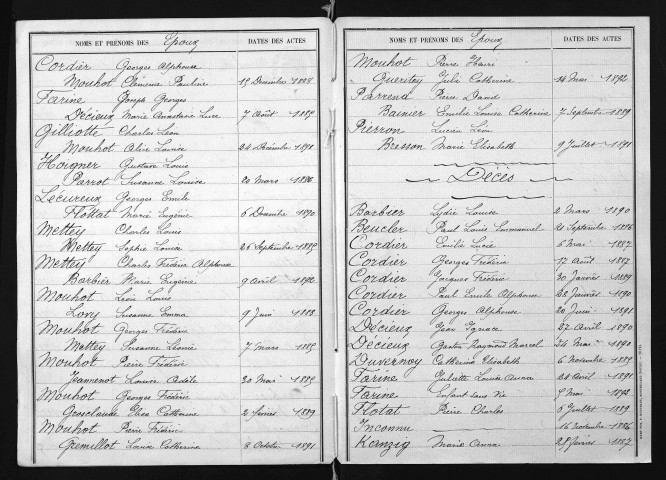 NOMS ET PRÉNOMS DES Epoux DATES DES ACTES
Cordier Georges Alphonse
Mouhot Clémence Pauline 15 Décembre 1888
Farine Joseph Georges
Décieux Marie Anastasie Luce 7 Août 1885
Gilliotte Charles Léon
Mouhot Alice Louise 24 Décembre 1891
Hoigner Gustave Louis
Parrot Susanne Louise 20 Mars 1886
Lecureux Georges Emile
Flottat Marie Eugénie 6 Décembre 1890
Mettey Charles Louis
Mettey Sophie Louise 26 Septembre 1885
Mettey Charles Frédéric Alphonse
Barbier Marie Eugénie 9 Avril 1892
Mouhot Léon Louis
Lovy Susanne Emma 9 Juin 1888
Mouhot Georges Frédéric
Mettey Susanne 7 Mars 1885
Mouhot Pierre Frédéric
Jeannenot Louise Adèle 30 Mai 1885
Mouhot Georges Frédéric
Grosclaude Elise Catherine 2 Février 1889
Mouhot Pierre Frédéric
Gremillot Louise Catherine 8 Octobre 1891
NOMS ET PRÉNOMS DES Epoux DATES DES ACTES
Mouhot Pierre Henri
Queritey Julie Catherine 14 Mai 1892
Parrend Pierre David
Bainier Emilie Louise Catherine 7 Septembre 1889
Pierron Lucien Léon
Bresson Marie Elisabeth 9 Juillet 1891
Décès
Barbier Lydie Louise 2 Mars 1890
Beucler Paul Louis Emmanuel 20 Septembre 1886
Cordier Emilie Lucie 6 Mai 1887
Cordier Georges Frédéric 17 Août 1887
Cordier Jacques Frédéric 30 Janvier 1889
Cordier Paul Emile Alphonse 28 Janvier 1890
Cordier Georges Alphonse 20 Juin 1891
Décieux Jean Ignace 27 Avril 1890
Décieux Gaston Raymond Marcel 24 Mai 1890
Duvernoy Catherine Elisabeth 6 Novembre 1889
Farine Juliette Louise Anna 21 Avril 1891
Farine Enfant sans Vie 9 Mai 1892
Flotat Pierre Charles 6 Juillet 1889
Inconnu 16 Novembre 1886
Kanzig Marie Anna 25 Février 1887